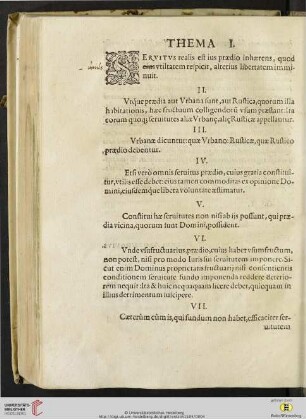 THEMA I.
SERVITVS realis est ius prædio inhærens, quod
vtilitatem respicit, alterius libertatem immi-
nuit.
II.
Vtque prædia aut Vrbana sunt, aut Rustica, quorum illa
habitationis, hæc fructuum colligendorū vsum præstant: ita
eorum quoq; seruitutes aliæ Vrbanæ, alię Rusticæ appellantur.
III.
Vrbanæ dicuntur: quæ Vrbano: Rusticæ, quæ Rustico
prædio debentur.
IV.
Etsi verò omnis seruitus prædio, cuius gratia constitui-
tur, vtilis esse debet: eius tamen commoditas ex opinione Do-
mini, eiusdemque libera voluntate æstimatur.
V.
Constitui hæ seruitutes non nisi ab iis possunt, qui præ-
dia vicina, quorum sunt Domini, possident.
VI.
Vnde vsufructuarius prædio, cuius habet vsumfructum,
non potest, nisi pro modo Iuris sui seruitutem imponere: Si-
cut enim Dominus proprietatis fructuarij nisi consentientis
conditionem seruitute fundo imponenda reddere deterio-
rem nequit: ita & huic nequaquam licere debet, quicquam in
illius detrimentum suscipere.
VII.
Cæterùm cùm is, qui fundum non habet, efficaciter ser-
uitutem
UNIVERSITÄTS-
BIBLIOTHEK
HEIDELBERG
© Universitätsbibliothek Heidelberg